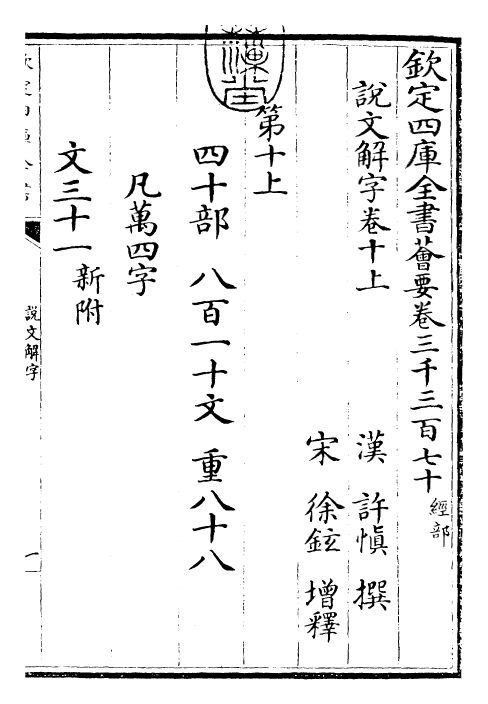 欽定四庫全書薈要卷三千三百七十 經部
說文解字卷十上
漢 許慎 撰
宋 徐鉉 增釋
第十上
四十部 八百一十文 重八十八
凡萬四字
文三十一 新附
說文解字
一